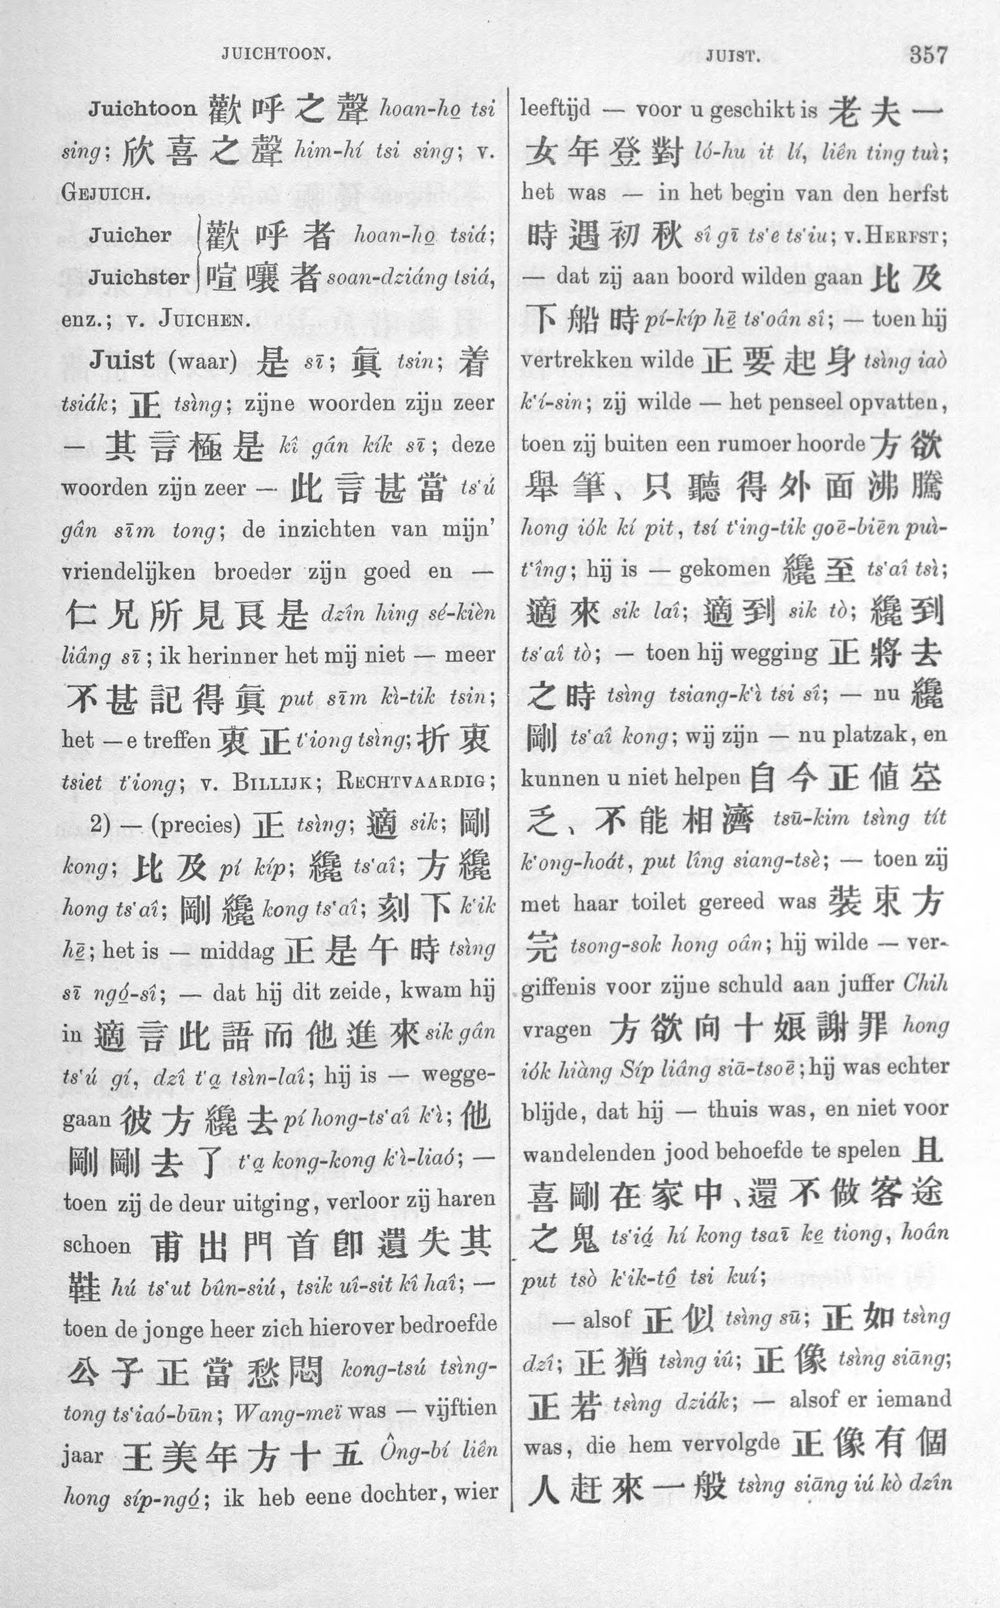 JUICHTOON.
JUIST.
357
Juichtoon 歡呼之聲 hoan-ho̲ tsi
sing; 欣喜之聲 him-hí tsi sing; v.
GEJUICH.
Juicher 歡呼者 hoan-ho̲ tsiá;
Juichster 喧嚷者 soan-dziáng tsiá,
enz.; v. JUICHEN.
Juist (waar) 是 sī; 眞 tsin; 着
tsiák; 正 tsìng; zijne woorden zijn zeer
— 其言極是 kî gân kík sī; deze
woorden zijn zeer — 此言甚當 ts'ú
gân sīm tong; de inzichten van mijn'
vriendelijken broeder zijn goed en —
仁兄所見良是 dzîn hing sé-kièn
liâng sī; ik herinner het mij niet — meer
不甚記得眞 put sīm kì-tik tsin;
het —e treffen 衷正 t'iong tsìng; 折衷
tsiet t'iong; v. BILLIJK; RECHTVAARDIG;
2) — (precies) 正 tsìng; 適 sik; 剛
kong; 比及 pí kíp; 纔 ts'aî; 方纔
hong ts'aî; 剛纔 kong ts'aî; 刻下 k'ik
hē̲; het is — middag 正是午時 tsìng
sī ngó̲-sî; — dat hij dit zeide, kwam hij
in 適言此語而他進來 sik gân
ts'ú gí, dzî t'a̲ tsìn-laî; hij is — wegge-
gaan 彼方纔去 pí hong-ts'aî k'ì; 他
剛剛去了 t'a̲ kong-kong k'ì-liaó; —
toen zij de deur uitging, verloor zij haren
schoen 甫出門首卽遺失其
鞋 hú ts'ut bûn-siú, tsik uî-sit kî haî; —
toen de jonge heer zich hierover bedroefde
公子正當愁悶 kong-tsú tsìng-
tong ts'iaó-būn; Wang-meï was — vijftien
jaar 王美年方十五 Ông-bí liên
hong síp-ngó̲; ik heb eene dochter, wier
leeftijd — voor u geschikt is 老夫一
女年登對 ló-hu it lí, liên ting tuì;
het was — in het begin van den herfst
時遇初秋 sî gī ts'e ts'iu; v. HERFST;
— dat zij aan boord wilden gaan 比及
下船時 pí-kíp hē̲ ts'oân sî; — toen hij
vertrekken wilde 正要起身 tsìng iaò
k'í-sin; zij wilde — het penseel opvatten,
toen zij buiten een rumoer hoorde 方欲
舉筆、只聽得外面沸騰
hong iók kí pit, tsí t'ing-tik goē-biēn puì-
t'îng; hij is — gekomen 纔至 ts'aî tsì;
適來 sik laî; 適到 sik tò; 纔到
ts'aî tò; — toen hij wegging 正將去
之時 tsìng tsiang-k'ì tsi sî; — nu 纔
剛 ts'aî kong; wij zijn — nu platzak, en
kunnen u niet helpen 自今正値空
乏、不能相濟 tsū-kim tsìng tít
k'ong-hoát, put lîng siang-tsè; — toen zij
met haar toilet gereed was 裝束方
完 tsong-sok hong oân; hij wilde — ver-
giffenis voor zijne schuld aan juffer Chih
vragen 方欲向十娘謝罪 hong
iók hiàng Síp liâng siā-tsoē; hij was echter
blijde, dat hij — thuis was, en niet voor
wandelenden jood behoefde te spelen 且
喜剛在家中、還不做客途
之鬼 ts'iá̲ hí kong tsaī ke̲ tiong, hoân
put tsò k'ik-tô̲ tsi kuí;
— alsof 正似 tsìng sū; 正如 tsìng
dzî; 正猶 tsìng iû; 正像 tsìng siāng;
正若 tsìng dziák; — alsof er iemand
was, die hem vervolgde 正像有個
人赶來一般 tsìng siāng iú kò dzîn